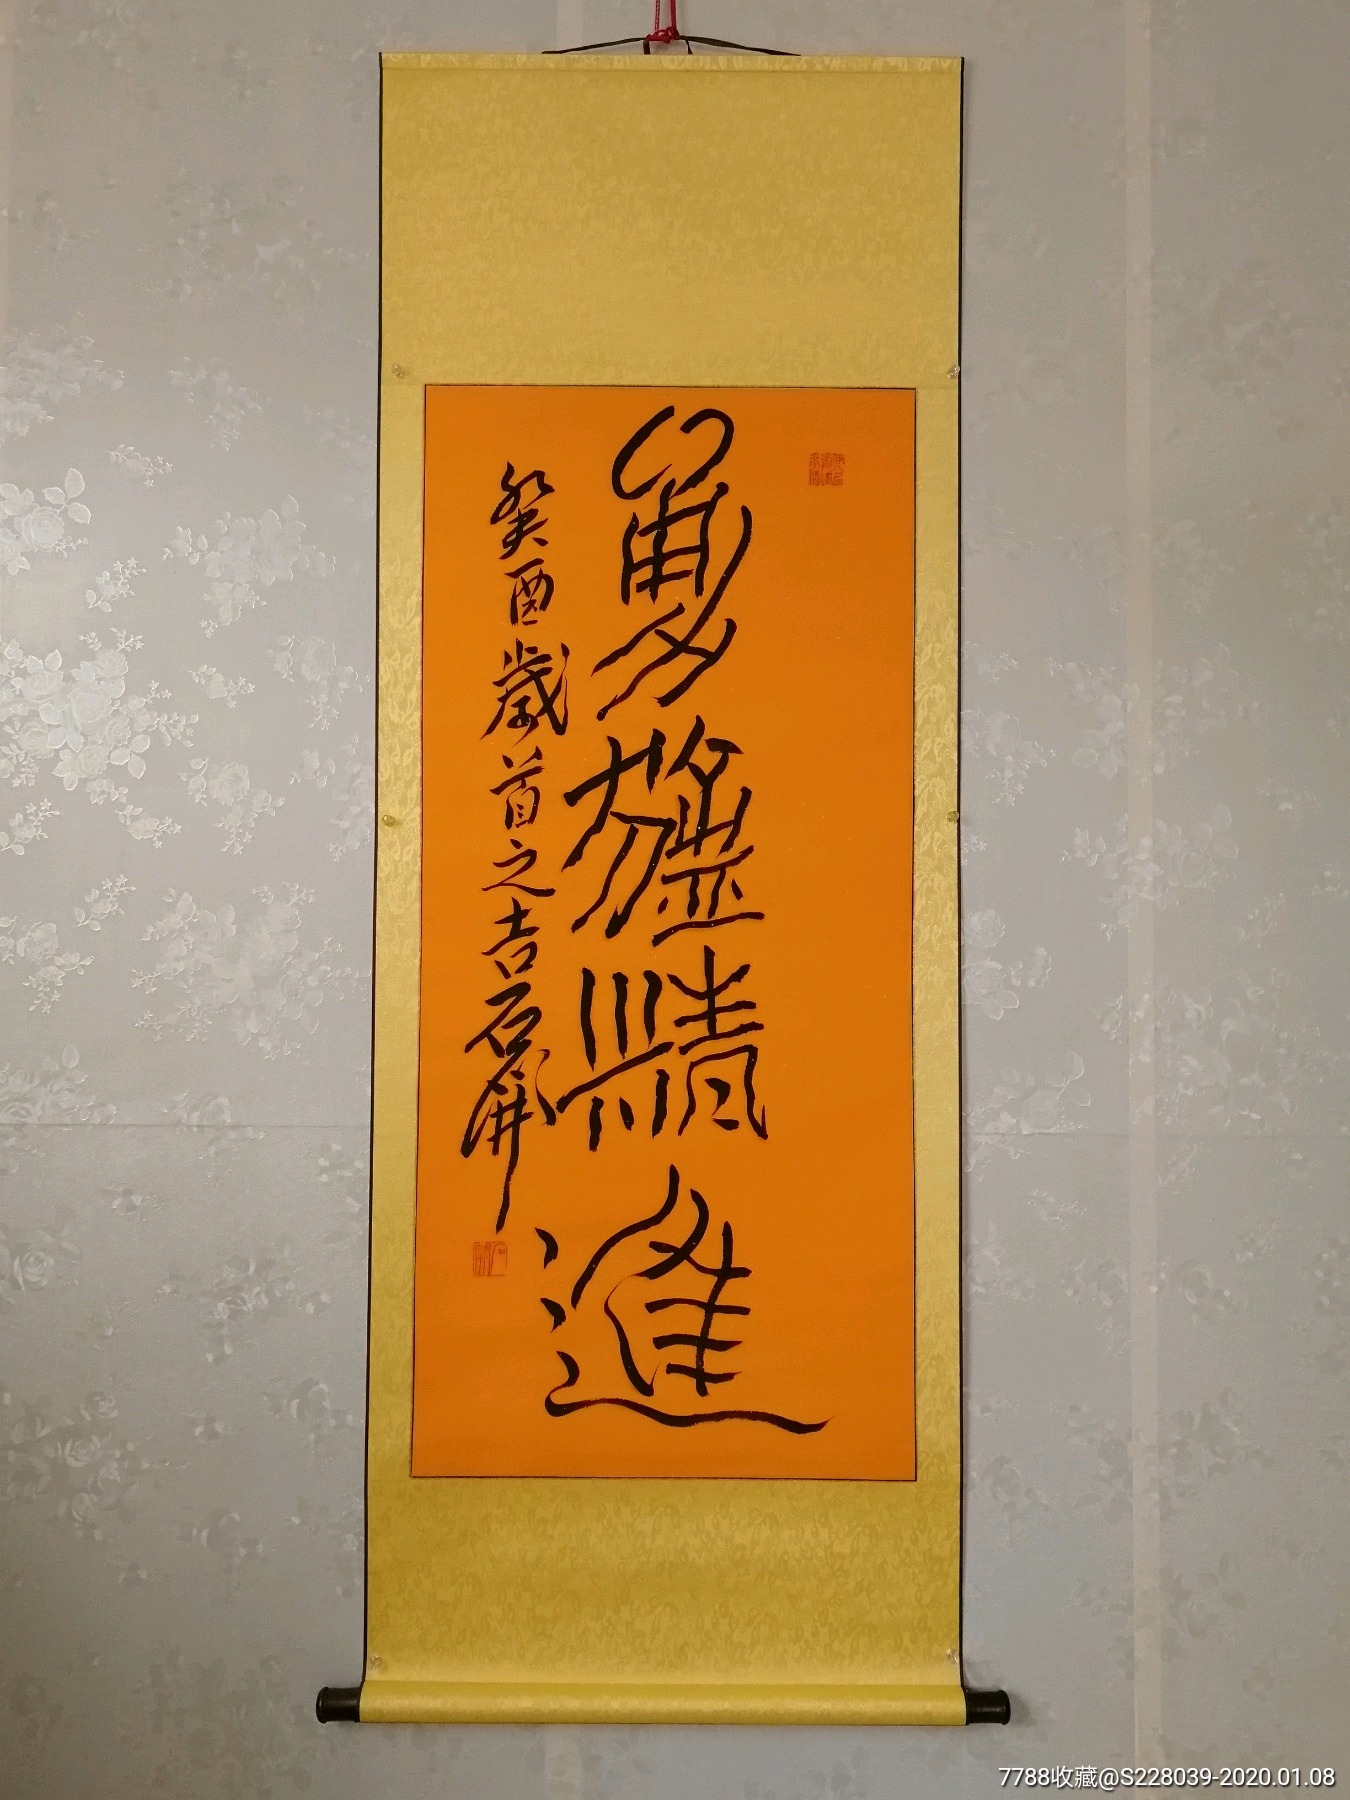 勇猛精進
癸酉歲首之吉石開
7788收藏@S228039-2020.01.08